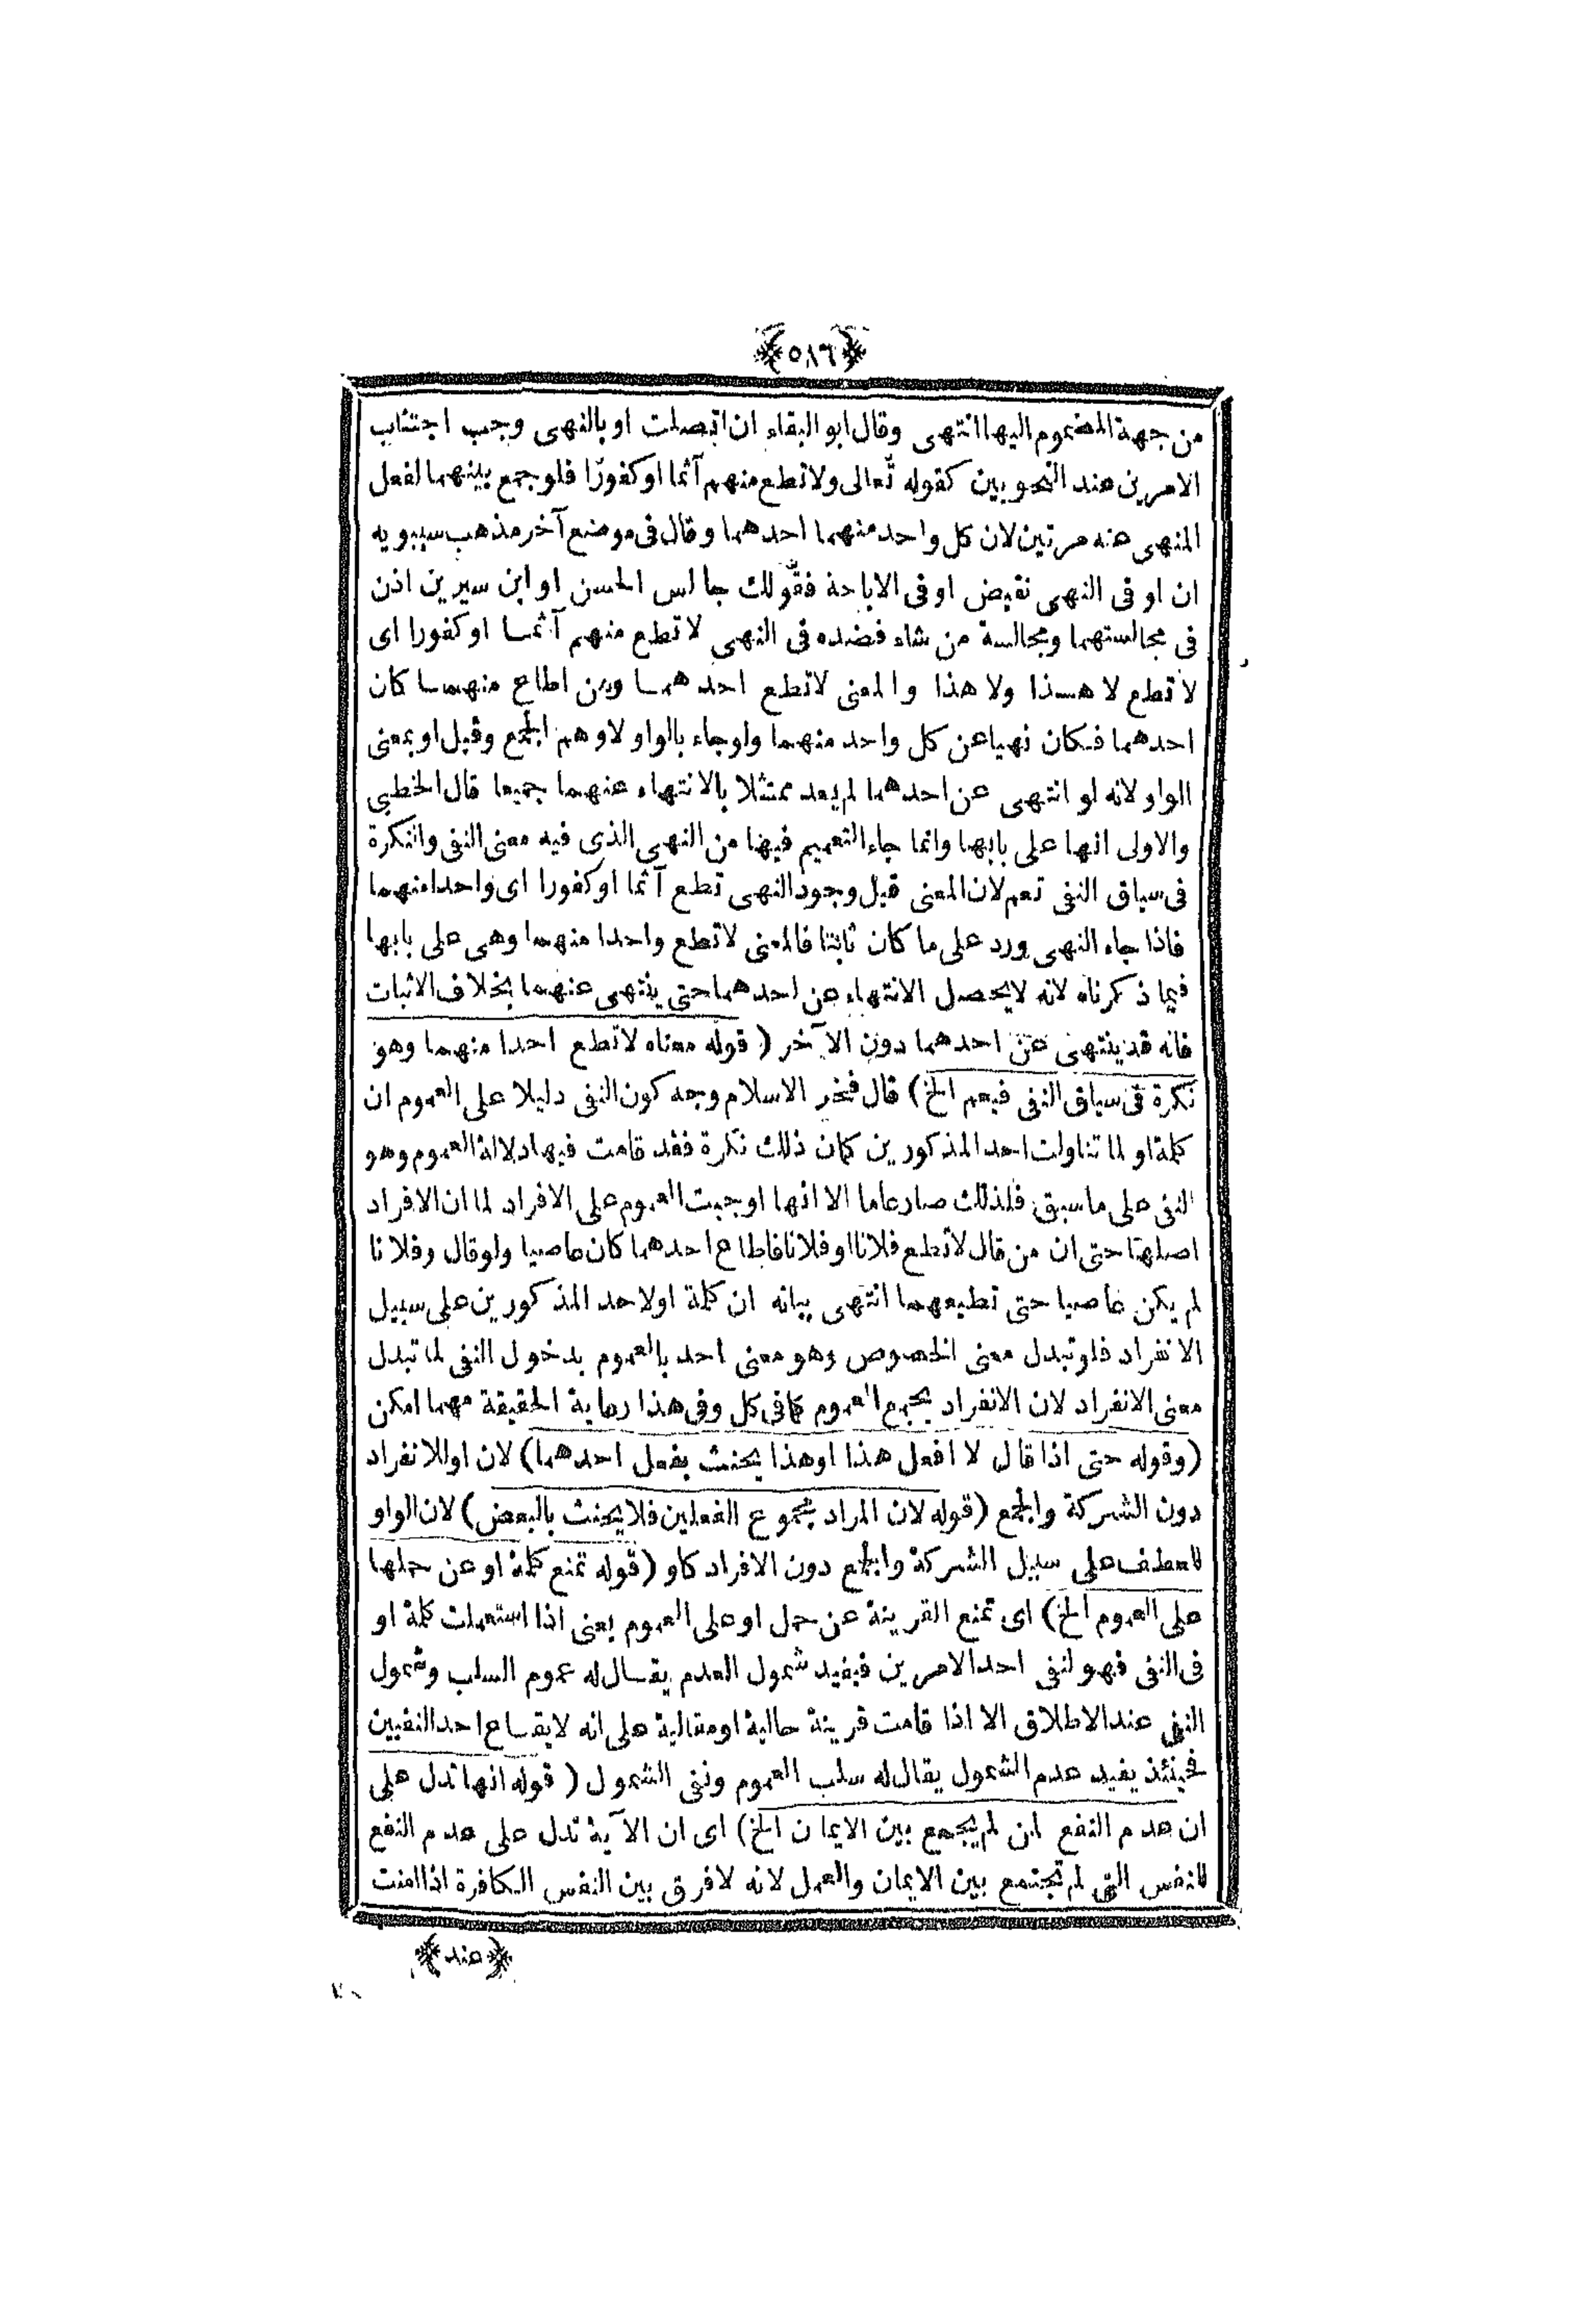 ﴿٥٨٦﴾
من جهة المضموم اليها انتهى وقال ابو البقاء ان اتصلت او بالنهى وجب اجتناب
الامرين عند النحويين كقوله تعالى ولا تطع منهم آثما او كفورا فلو جمع بينهما لفعل
المنهى عنه مرتين لان كل واحد منهما احدهما وقال فى موضع آخر مذهب سيبويه
ان او فى النهى نقيض او فى الاباحة فقولك جالس الحسن او ابن سيرين اذن
فى مجالستهما ومجالسة من شاء فضده فى النهى لا تطع منهم آثما او كفورا اى
لا تطع لا هذا ولا هذا والمعنى لا تطع احدهما ومن اطاع منهما كان
احدهما فكان نهيا عن كل واحد منهما ولو جاء بالواو لاوهم الجمع وقيل او بمعنى
الواو لانه لو انتهى عن احدهما لم يعد ممتثلا بالانتهاء عنهما جميعا قال الخطبى
والاولى انها على بابها وانما جاء التعميم فيها من النهى الذى فيه معنى النفى والنكرة
فى سياق النفى تعم لان المعنى قبل وجود النهى تطع آثما او كفورا اى واحدا منهما
فاذا جاء النهى ورد على ما كان ثابتا فالمعنى لا تطع واحدا منهما وهى على بابها
فيما ذكرناه لانه لا يحصل الانتهاء عن احدهما حتى ينتهى عنهما بخلاف الاثبات
فانه قد ينتهى عن احدهما دون الآخر ( قوله معناه لا تطع احدا منهما وهو
نكرة فى سياق النفى فيعم الخ) قال فخر الاسلام وجه كون النفى دليلا على العموم ان
كلمة او لما تناولت احد المذكورين كان ذلك نكرة فقد قامت فيها دلالة العموم وهو
النفى على ما سبق فلذلك صار عاما الا انها اوجبت العموم على الافراد لما ان الافراد
اصلها حتى ان من قال لا تطع فلانا او فلانا فاطاع احدهما كان عاصيا ولو قال وفلانا
لم يكن عاصيا حتى تطيعهما انتهى بيانه ان كلمة او لاحد المذكورين على سبيل
الانفراد فلو تبدل معنى الخصوص وهو معنى احد بالعموم بدخول النفى لما تبدل
معنى الانفراد لان الانفراد يجمع العموم كما فى كل وفى هذا رعاية الحقيقة مهما امكن
(وقوله حتى اذا قال لا افعل هذا او هذا يحنث بفعل احدهما) لان او للانفراد
دون الشركة والجمع (قوله لان المراد مجموع الفعلين فلا يحنث بالبعض) لان الواو
للعطف على سبيل الشركة والجمع دون الافراد كاو (قوله تمنع كلمة او عن حملها
على العموم الخ) اى تمنع القرينة عن حمل او على العموم يعنى اذا استعملت كلمة او
فى النفى فهو لنفى احد الامرين فيفيد شمول العدم يقال له عموم السلب وشمول
النفى عند الاطلاق الا اذا قامت قرينة حالية او مقالية على انه لايقاع احد النفيين
فحينئذ يفيد عدم الشمول يقال له سلب العموم ونفى الشمول ( قوله انها تدل على
ان عدم النفع لمن لم يجمع بين الايمان الخ) اى ان الآية تدل على عدم النفع
للنفس التى لم تجتمع بين الايمان والعمل لانه لا فرق بين النفس الكافرة اذا امنت
﴿عند﴾